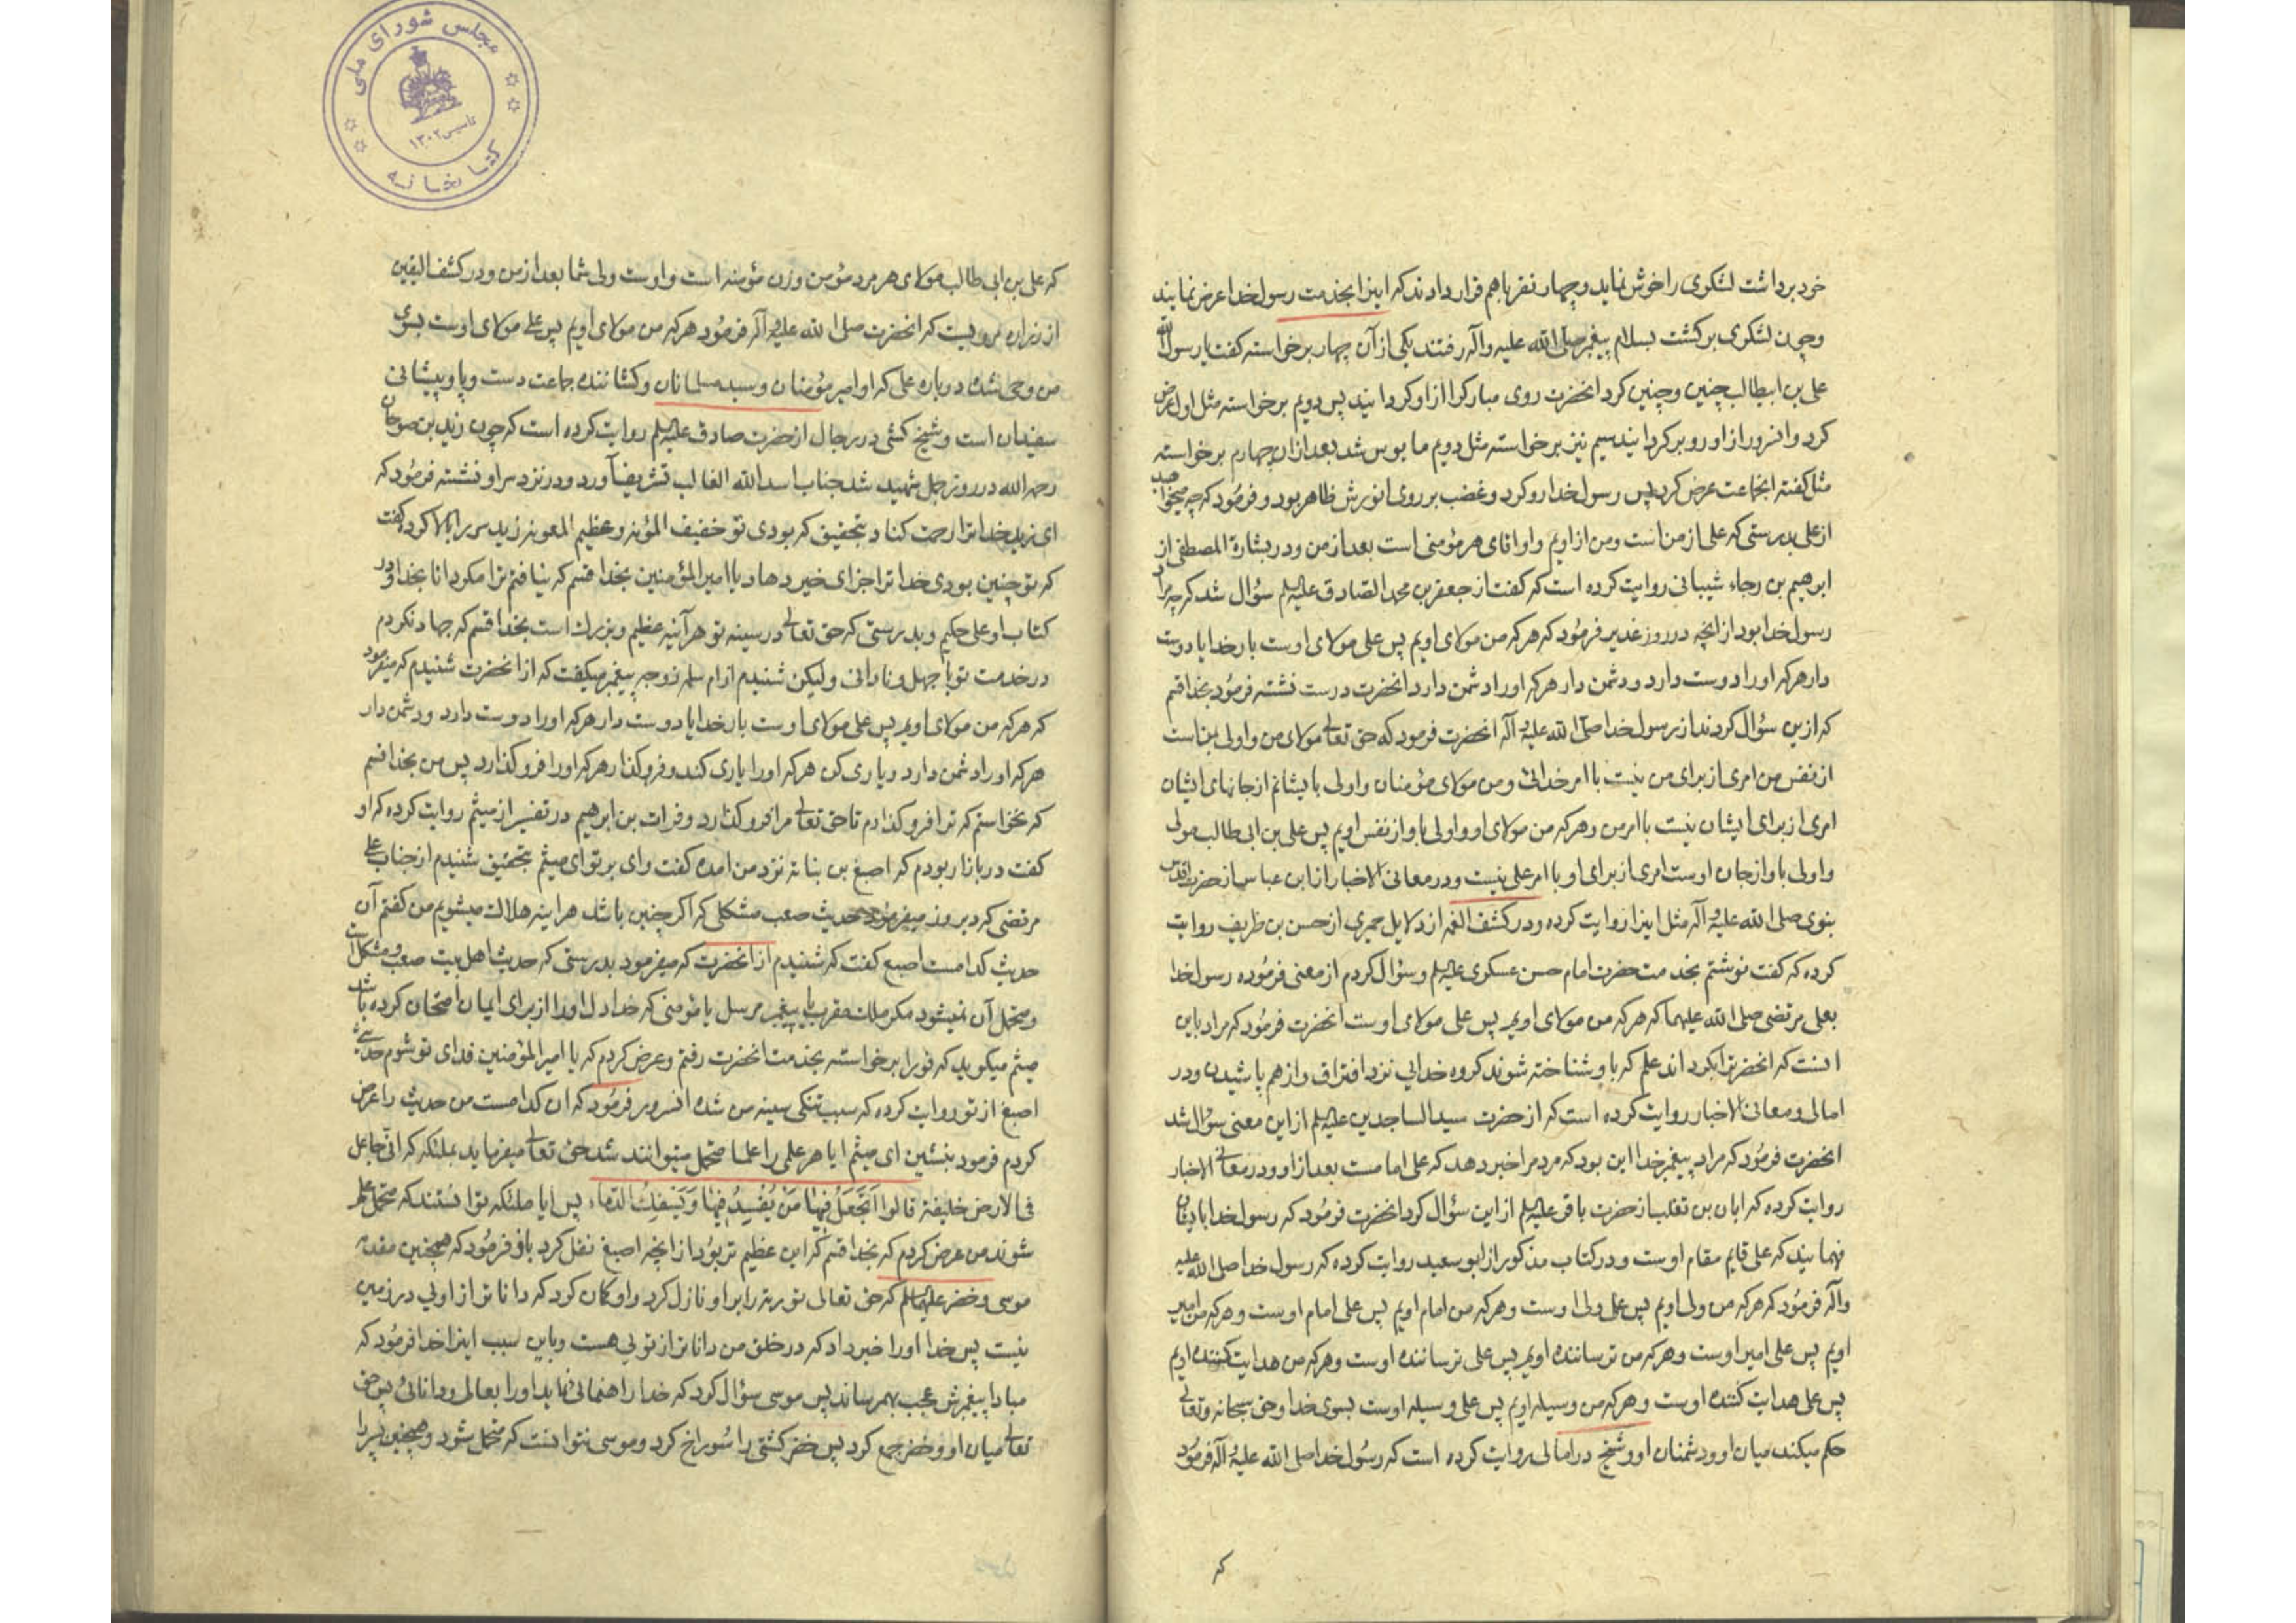 خود برداشت لشکری را خوش نماید و چهار نفر باهم قرار دادند که اینرا بخدمت رسول خدا عرض نمایند
و چون لشکری برکشت بسلام پیغمبر صلی الله علیه و آله رفتند یکی از آن چهار برخواسته کفت یا رسول الله
علی بن ابیطالب چنین و چنین کرد انحضرت روی مبارکرا از او کردانید پس دویم برخواسته مثل اول عرض
کرد و انسرور از او رو بر کردانید سیم نیز برخواسته مثل دویم مایوس شد بعد ازان چهارم برخواسته
مثل کفته انجماعت عرض کرد پس رسول خدا رو کرد و غضب بر روی انورش ظاهر بود و فرمود که چه میخواهید
از علی بدرستی که علی از من است و من از اویم و او انای هر مؤمنی است بعد از من و در بشارة المصطفی از
ابرهیم بن رجاء شیبانی روایت کرده است که کفت از جعفر بن محمد الصادق علیه السلم سؤال شد که چه مراد
رسول خدا بود از انچه در روز غدیر فرمود که هر که من مولای اویم پس علی مولای اوست بار خدایا دوست
دار هر که او را دوست دارد و دشمن دار هر که او را دشمن دارد انحضرت درست نشسته فرمود بخدا قسم
که ازین سؤال کردند از رسول خدا صلی الله علیه و آله انحضرت فرمود که حق تعالی مولای من و اولی بمن است
از نفس من امری از برای من نیست با امر خدائی و من مولای مؤمنان و اولی بایشانم از جانهای ایشان
امری از برای ایشان نیست با امر من و هر که من مولای او و اولی باو از نفس اویم پس علی بن ابی طالب مولی
و اولی باو از جان اوست امری از برای او با امر علی نیست و در معانی الاخبار از ابن عباس از حضرت اقدس
نبوی صلی الله علیه و آله مثل اینرا روایت کرده و در کشف الغمه از دلایل حمیری از حسن بن ظریف روایت
کرده که کفت نوشتم بخدمت حضرت امام حسن عسکری علیه السلم و سؤال کردم از معنی فرموده رسول خدا
بعلی مرتضی صلی الله علیهما که هر که من مولای اویم پس علی مولای اوست انحضرت فرمود که مراد باین
انست که انحضرترا بکرداند علم که باو شناخته شوند کروه خدایی نزد افتراق و از هم پاشیدن و در
امالی و معانی الاخبار روایت کرده است که از حضرت سید الساجدین علیه السلم از این معنی سؤال شد
انحضرت فرمود که مراد پیغمبر خدا این بود که مردم را خبر دهد که علی امامست بعد از او و در معانی الاخبار
روایت کرده که ابان بن تغلب از حضرت باقر علیه السلم از این سؤال کرد انحضرت فرمود که رسول خدا
فهمانید که علی قایم مقام اوست و در کتاب مذکور از ابو سعید روایت کرده که رسول خدا صلی الله علیه
و آله فرمود که هر که من ولی اویم پس علی ولی اوست و هر که من امام اویم پس علی امام اوست و هر که من امیر
اویم پس علی امیر اوست و هر که من ترساننده اویم پس علی ترساننده اوست و هر که من هدایت کننده اویم
پس علی هدایت کننده اوست و هر که من وسیله اویم پس علی وسیله اوست بسوی خدا و حق سبحانه و تعالی
حکم میکند میان او و دشمنان او و شیخ در امالی روایت کرده است که رسول خدا صلی الله علیه و آله فرمود
که
مجلس شورای ملی
تاسیس ۱۳۰۲
کتابخانه
که علی بن ابی طالب مولای هر مرد مؤمن و زن مؤمنه است و اوست ولی شما بعد از من و در کشف الیقین
از زراره مرویست که انحضرت صلی الله علیه و آله فرمود هر که من مولای اویم پس علی مولای اوست بسوی
من وحی شده درباره علی که او امیر مؤمنان و سید مسلمانان و کشاننده جماعت دست و پا و پیشانی
سفیدان است و شیخ کشی در رجال از حضرت صادق علیه السلم روایت کرده است که چون زید بن صوحان
رحمه الله در روز جمل شهید شد جناب اسد الله الغالب تشریف آورد و در نزد سر او نشسته فرمود که
ای زید خدا ترا رحمت کناد بتحقیق که بودی تو خفیف المؤنه و عظیم المعونه زید سر را بالا کرده کفت
که تو چنین بودی خدا ترا جزای خیر دهاد یا امیر المؤمنین بخدا قسم که نیافتم ترا مکر دانا بخدا و در
کتاب او علی حکیم و بدرستی که حق تعالی در سینه تو هر آینه عظیم و بزرک است بخدا قسم که جهاد نکردم
در خدمت تو با جهل و نادانی ولیکن شنیدم از ام سلمه زوجه پیغمبر میکفت که از انحضرت شنیدم که میفرمود
که هر که من مولای اویم پس علی مولای اوست بار خدایا دوست دار هر که او را دوست دارد و دشمن دار
هر که او را دشمن دارد و یاری کن هر که او را یاری کند و فرو کذار هر که او را فرو کذارد پس من بخدا قسم
که نخواستم که ترا فرو کذارم تا حق تعالی مرا فرو کذارد و فرات بن ابرهیم در تفسیر از میثم روایت کرده که او
کفت در بازار بودم که اصبغ بن نباته نزد من امده کفت وای بر تو ای میثم بتحقیق شنیدم از جناب علی
مرتضی که دیروز میفرمود حدیث صعب مشکلی که اکر چنین باشد هراینه هلاک میشویم من کفتم آن
حدیث کدامست اصبغ کفت که شنیدم از انحضرت که میفرمود بدرستی که حدیث اهل بیت صعب و مشکل است
و متحمل آن نمیشود مکر ملک مقرب یا پیغمبر مرسل یا مؤمنی که خدا دل او را از برای ایمان امتحان کرده باشد
میثم میکوید که فورا برخواسته بخدمت انحضرت رفتم و عرض کردم که یا امیر المؤمنین فدای تو شوم حدیثی
اصبغ از تو روایت کرده که سبب تنکی سینه من شده انسرور فرمود که ان کدامست من حدیث را عرض
کردم فرمود بنشین ای میثم ایا هر علمی را علما متحمل میتوانند شد حق تعالی میفرماید بملئکه که انی جاعل
فی الارض خلیفة قالوا اَتَجعَلُ فیها مَن یُفسِدُ فیها وَیَسفِکُ الدماء پس ایا ملئکه توانستند که متحمل علم
شوند من عرض کردم که بخدا قسم که این عظیم تر بود از انچه اصبغ نقل کرد باز فرمود که همچنین مقدمه
موسی و خضر علیهما السلم که حق تعالی توریة را بر او نازل کرد و او کمان کرد که داناتر از اویی در زمین
نیست پس خدا او را خبر داد که در خلق من داناتر از تویی هست و باین سبب اینرا خدا فرمود که
مبادا پیغمبرش عجب بهمرساند پس موسی سؤال کرد که خدا راهنمائی نماید او را بعالمی و دانائی پس حق
تعالی میان او و خضر جمع کرد پس خضر کشتی را سوراخ کرد و موسی نتوانست که متحمل شود و همچنین پسر را